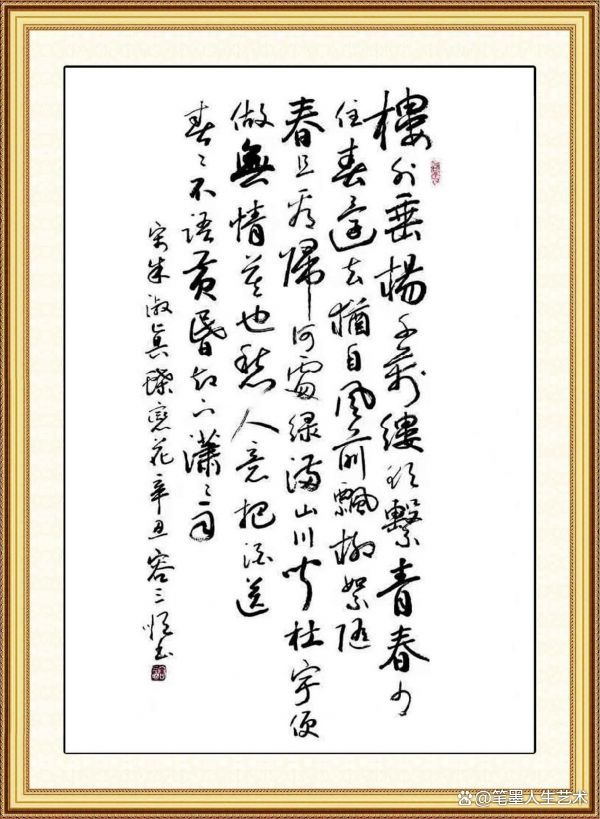 樓外垂楊千萬縷欲繫青春少
住春還去猶自風前飄柳絮隨
春且看歸何處綠滿山川聞杜宇便
做無情莫也愁人意把酒送
春〻不語黃昏却下瀟〻雨
宋朱淑真蝶戀花辛丑容三恒書
@笔墨人生艺术